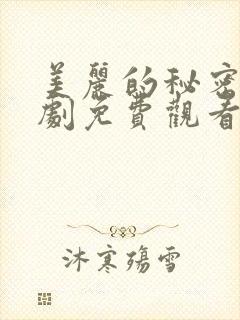 美麗的秘密
劇免費觀看
沐寒殤雪